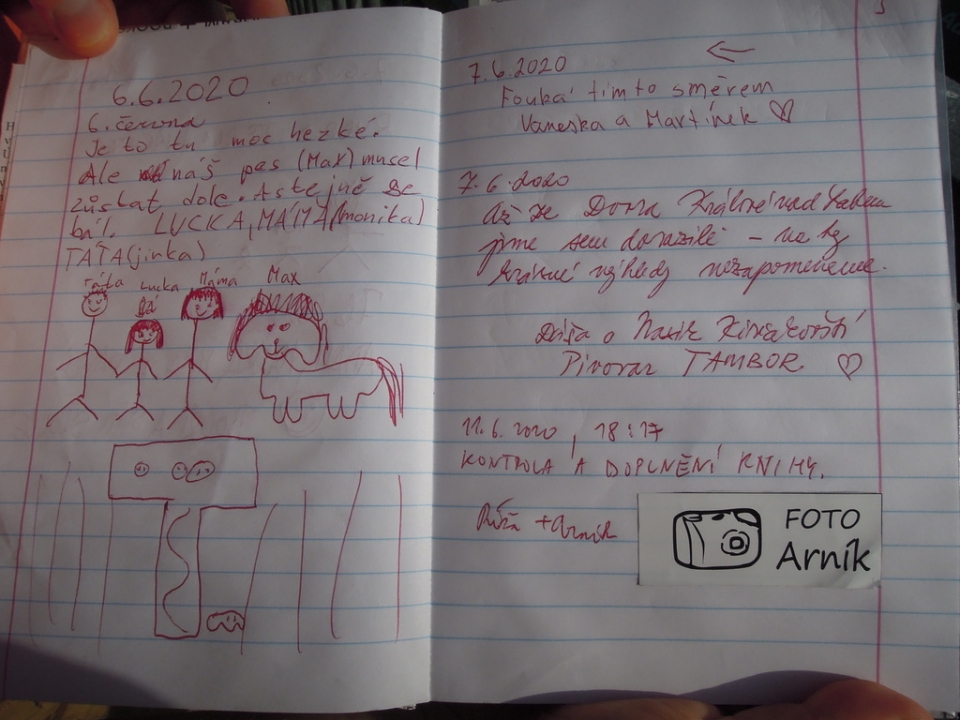 6.6.2020
6. června
Je to tu moc hezké.
Ale náš pes (Max) musel
zůstat dole. A stejně se
bál. LUCKA, MÁMA (monika)
TÁTA (jirka)
Táta
Lucka
Máma
Max
Já
7.6.2020
Fouká tímto směrem
Vaneska a Martínek
7.6.2020
Až ze Dvora Králové nad Labem
jsme sem dorazili – na ty
krásné výhledy nezapomeneme.
Pivovar TAMBOR
11.6.2020, 18:17
KONTROLA A DOPLNĚNÍ KNIHY.
+ Arník
FOTO
Arník